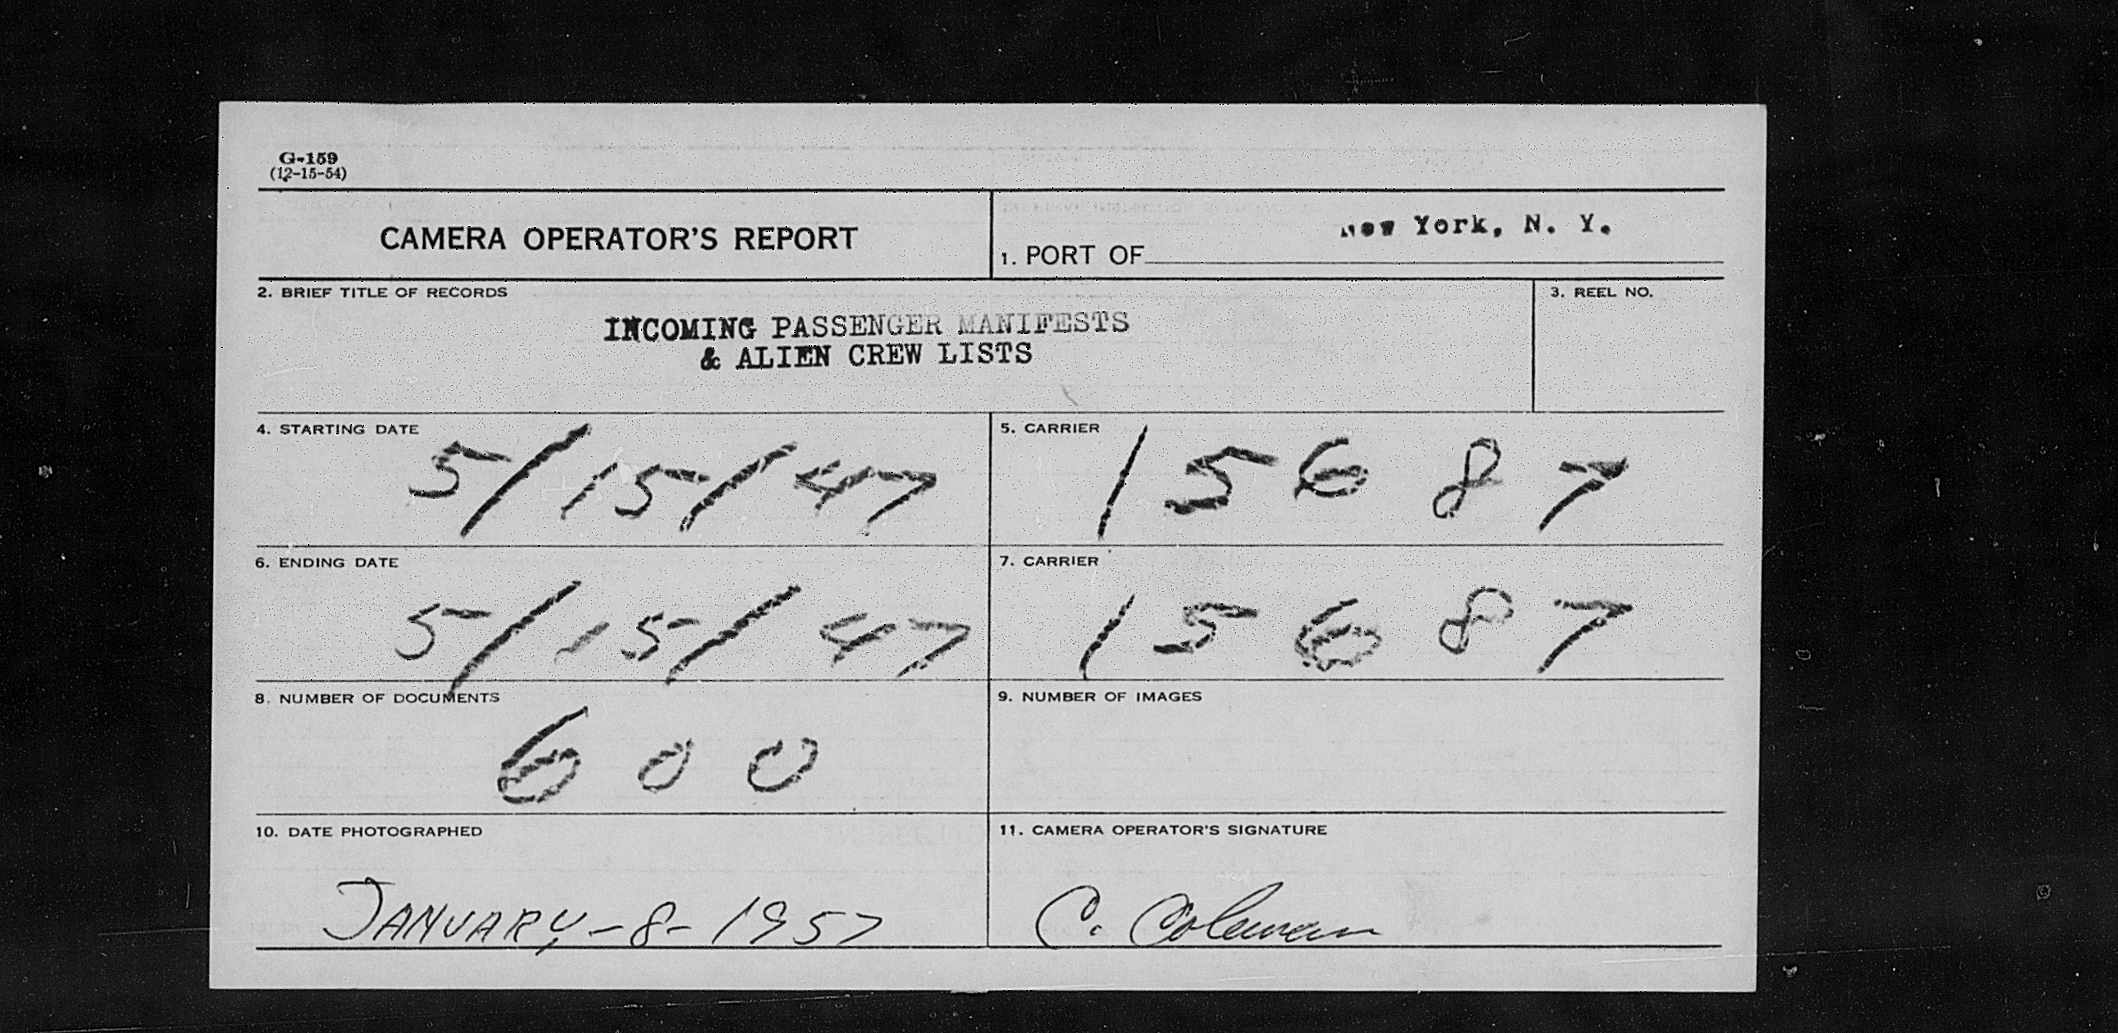 G-159
(12-15-54)
CAMERA OPERATOR'S REPORT
1. PORT OF New York, N. Y.
2. BRIEF TITLE OF RECORDS
INCOMING PASSENGER MANIFESTS
& ALIEN CREW LISTS
3. REEL NO.
4. STARTING DATE
5/15/47
5. CARRIER
15687
6. ENDING DATE
5/15/47
7. CARRIER
15687
8. NUMBER OF DOCUMENTS
600
9. NUMBER OF IMAGES
10. DATE PHOTOGRAPHED
JANUARY-8-1957
11. CAMERA OPERATOR'S SIGNATURE
C. Coleman